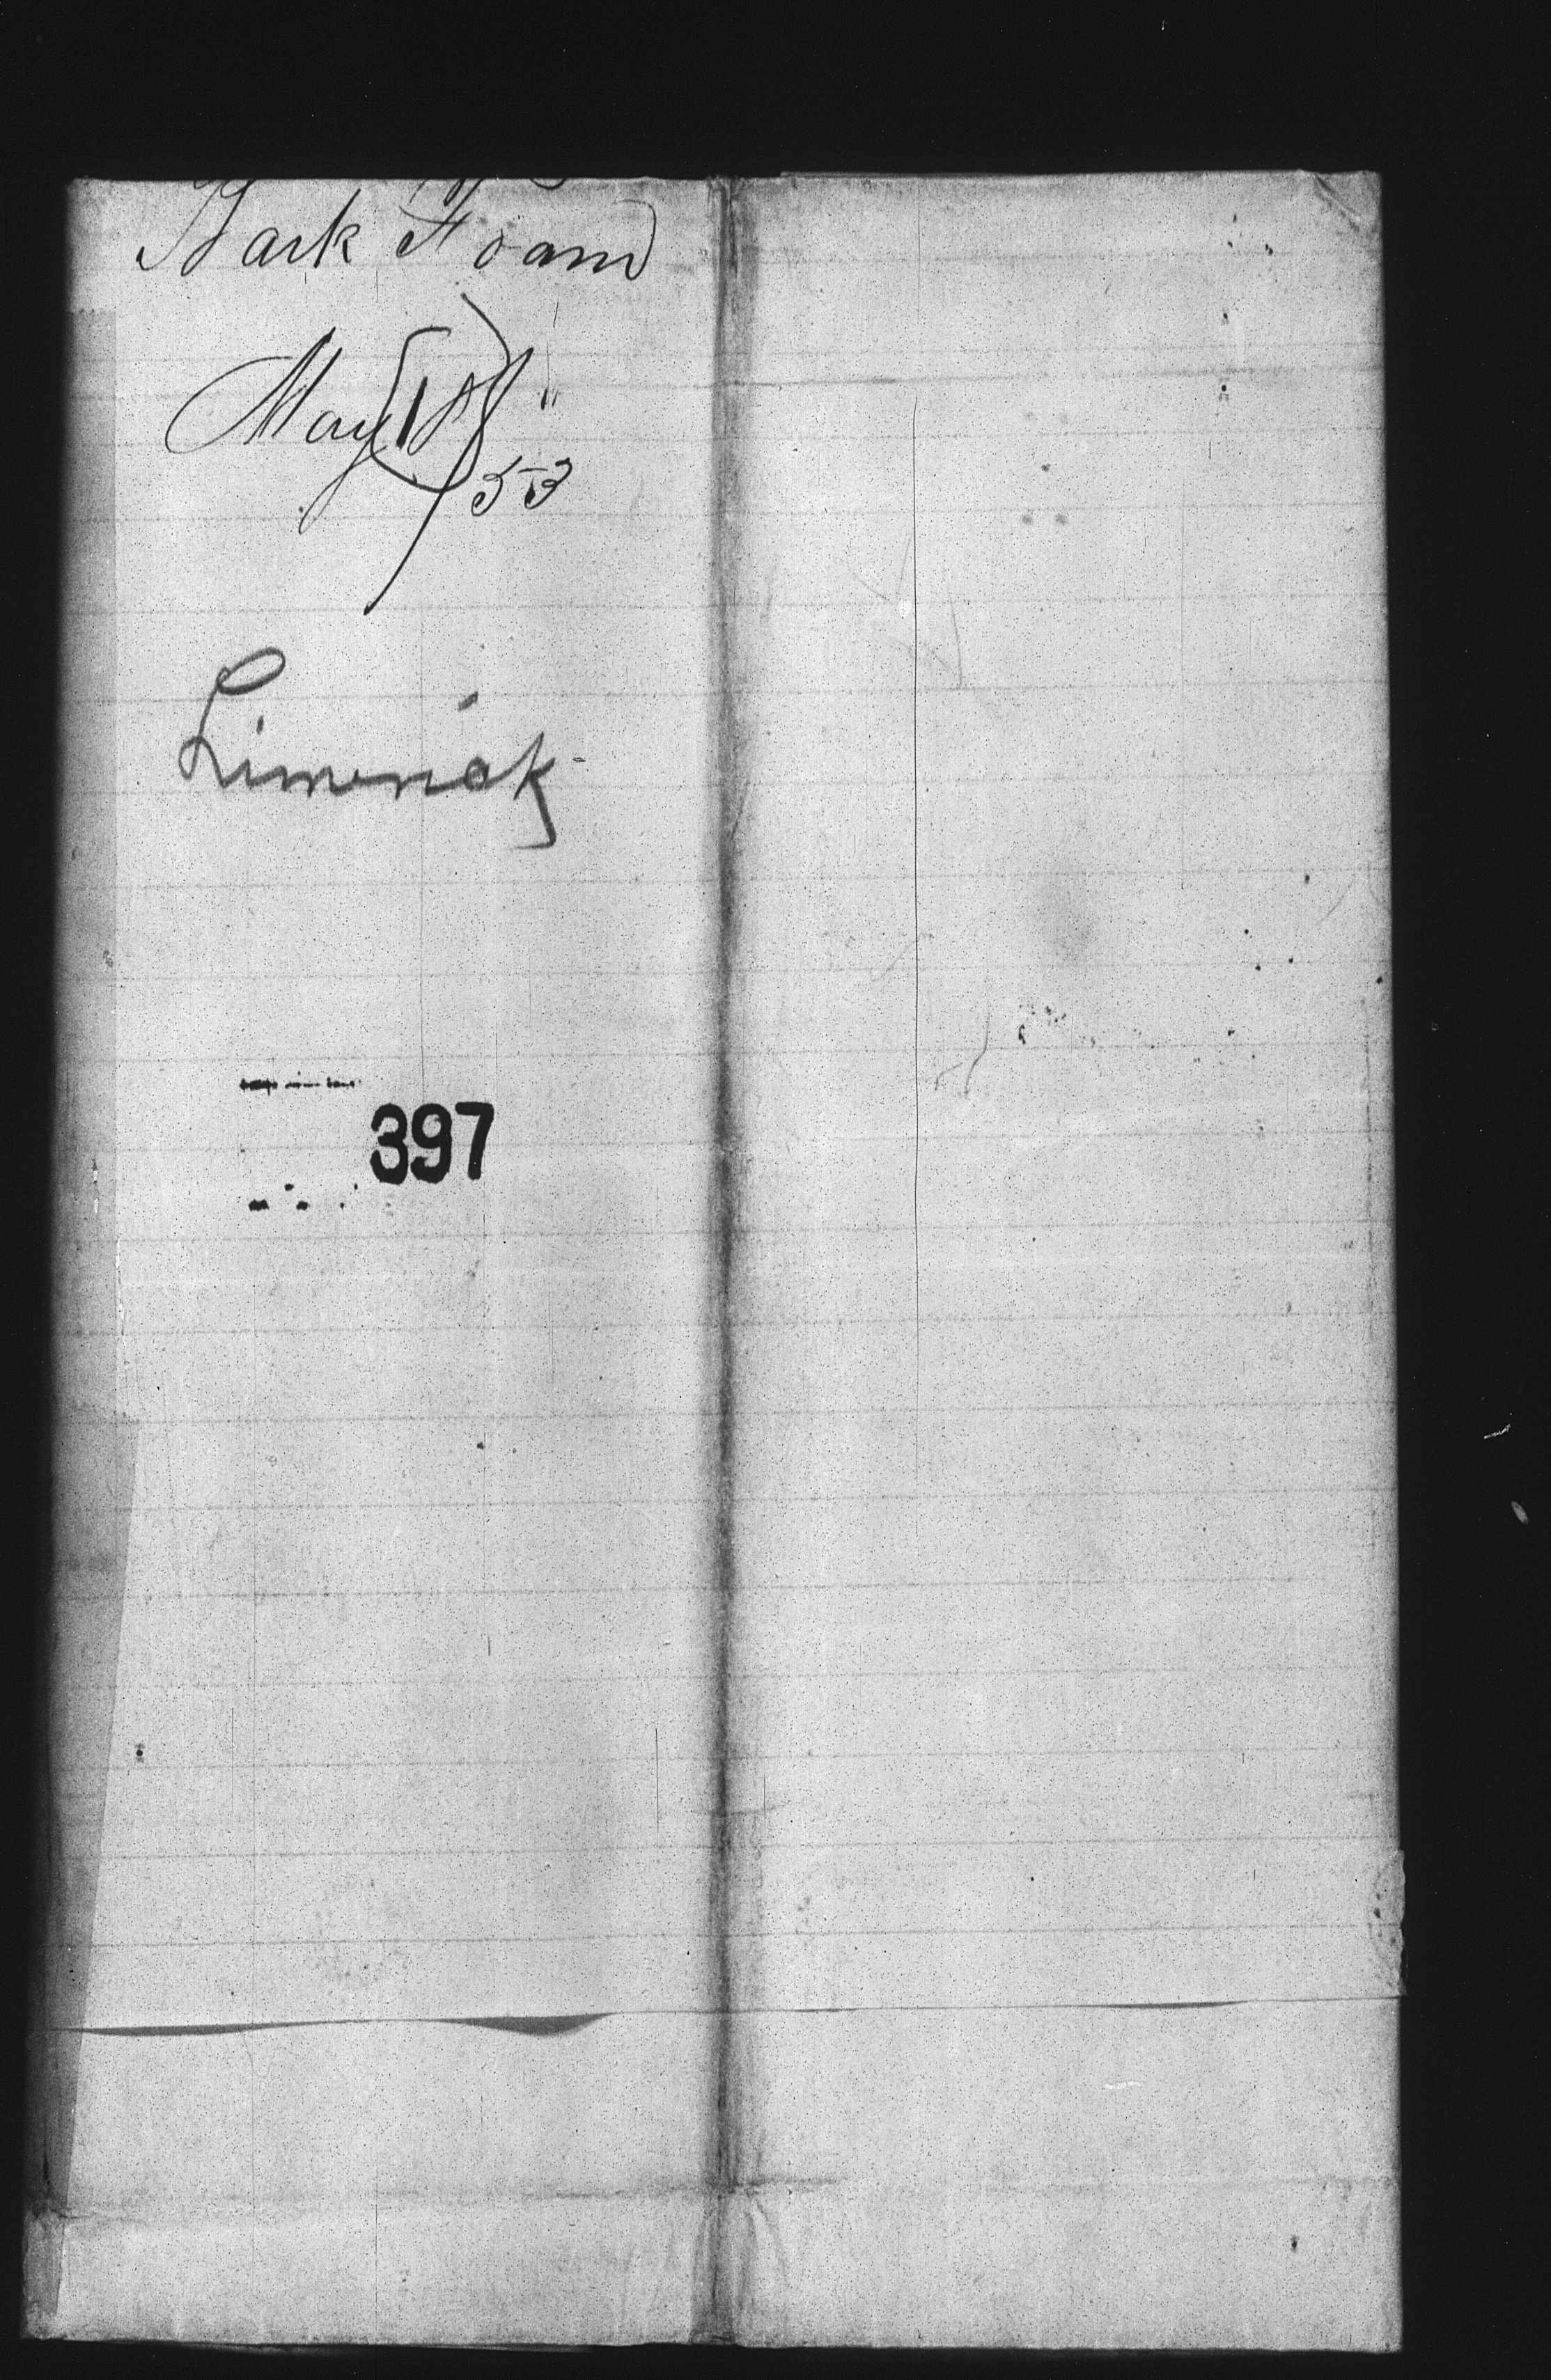 Bark Foam
May 18"
53
Limerick
397